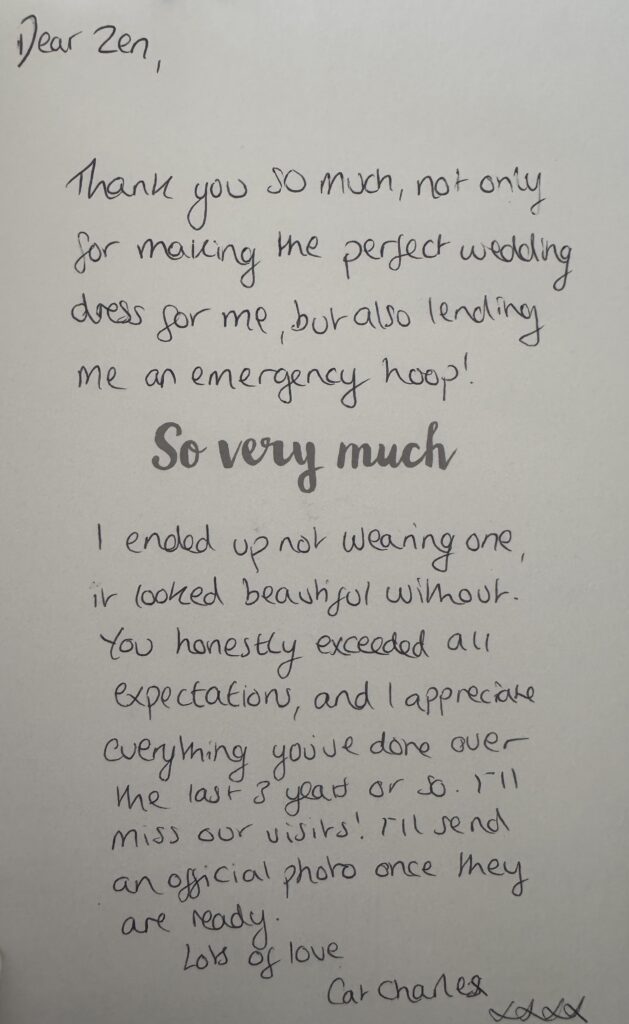 Dear Zen,
Thank you so much, not only
for making the perfect wedding
dress for me, but also lending
me an emergency hoop!
So very much
I ended up not wearing one,
it looked beautiful without.
You honestly exceeded all
expectations, and I appreciate
everything you've done over
the last 3 years or so. I'll
miss our visits! I'll send
an official photo once they
are ready.
Lots of love
Cat Charles
xxxx